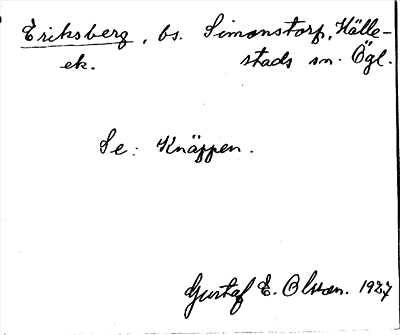 Eriksberg, bs. Simonstorp, Hälle-
ek. stads sn. Ögl.
Se: Knäppen.
Gustaf E. Olson. 1927